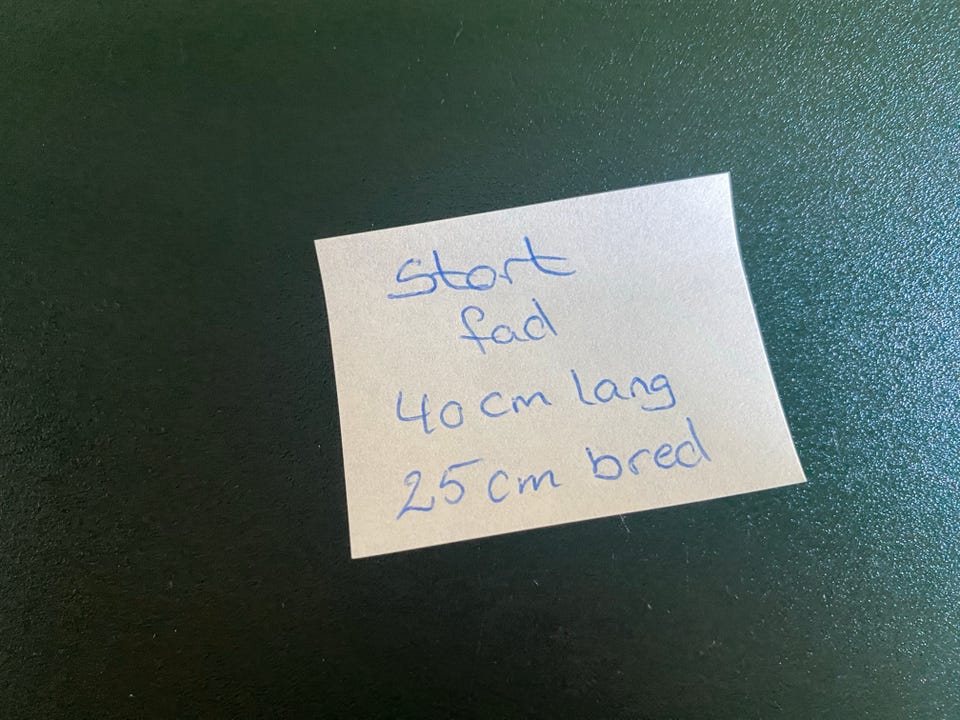 stort
fad
40 cm lang
25 cm bred